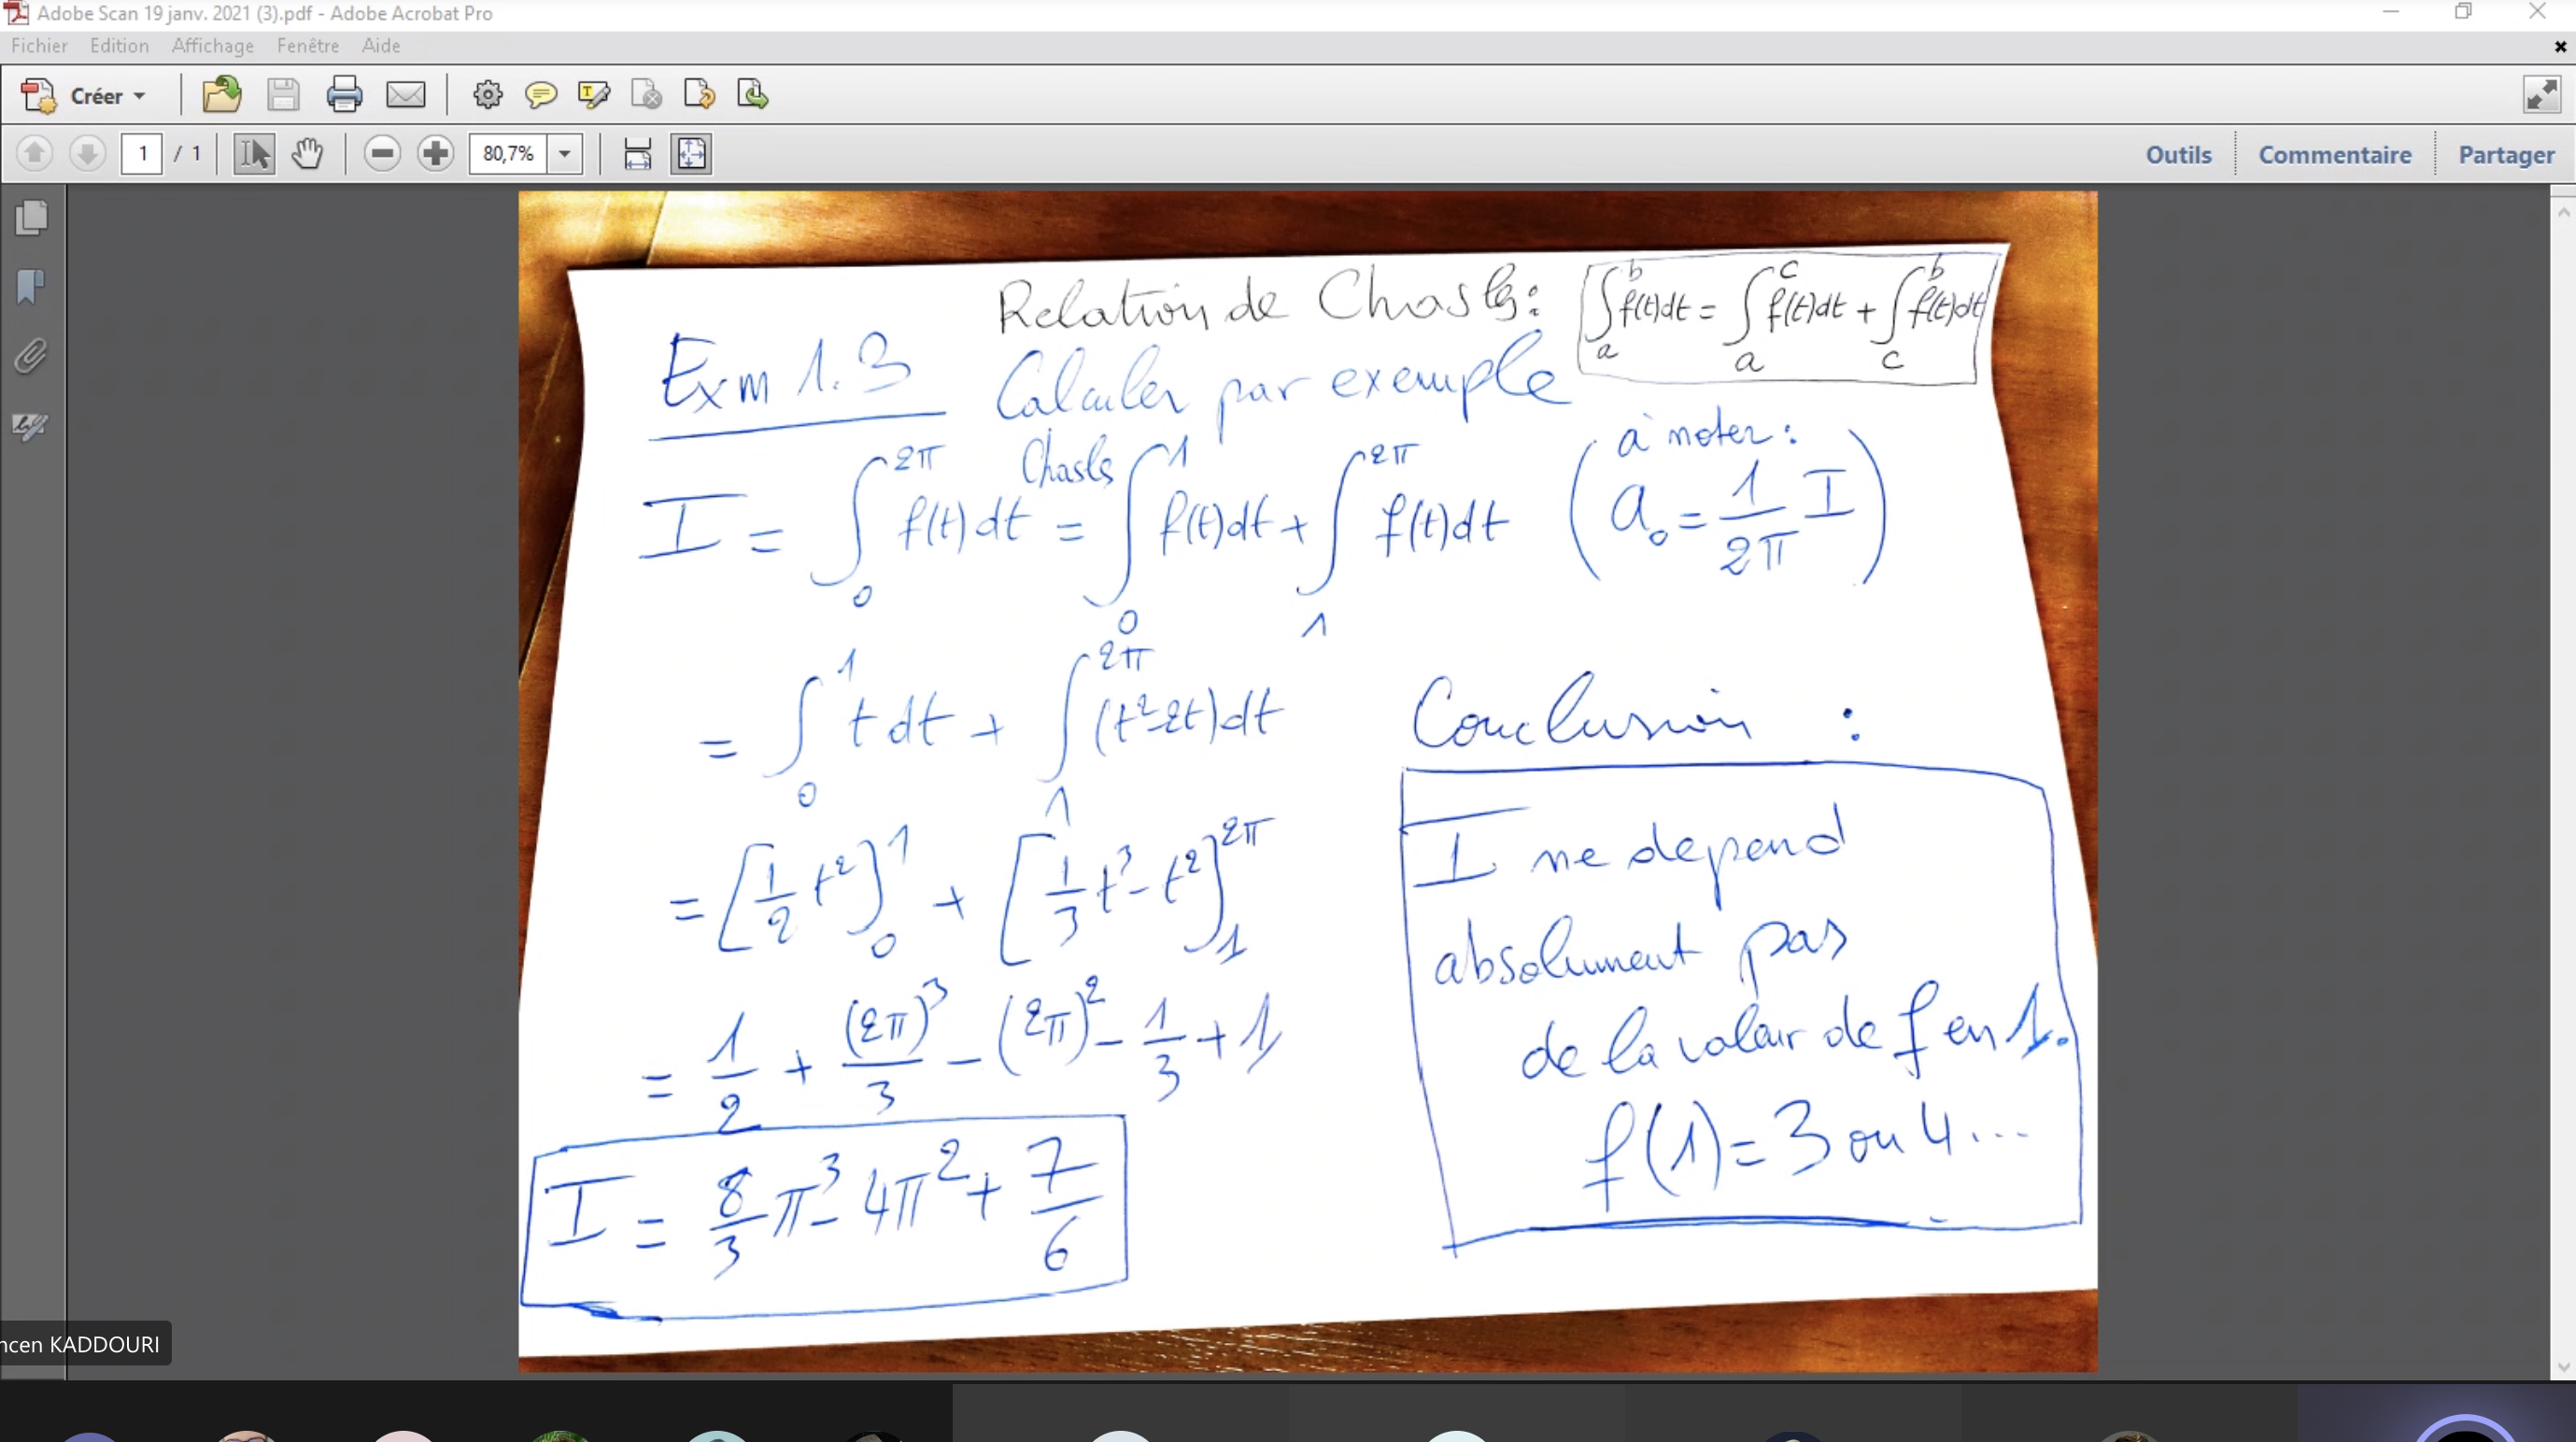 Adobe Scan 19 janv. 2021 (3).pdf - Adobe Acrobat Pro
Fichier Edition Affichage Fenêtre Aide
Créer
1 / 1 80,7% Outils Commentaire Partager
Relation de Chasles: ∫_a^b f(t)dt = ∫_a^c f(t)dt + ∫_c^b f(t)dt
Exm 1.3 Calculer par exemple
I = ∫_0^{2π} f(t)dt =^{Chasles} ∫_0^1 f(t)dt + ∫_1^{2π} f(t)dt (à noter: a_0 = 1/2π I)
= ∫_0^1 t dt + ∫_1^{2π} (t²-2t)dt
= [1/2 t²]_0^1 + [1/3 t³ - t²]_1^{2π}
= 1/2 + (2π)³/3 - (2π)² - 1/3 + 1
I = 8/3 π³ - 4π² + 7/6
Conclusion :
I ne depend
absolument pas
de la valeur de f en 1.
f(1) = 3 ou 4 ...
ncen KADDOURI